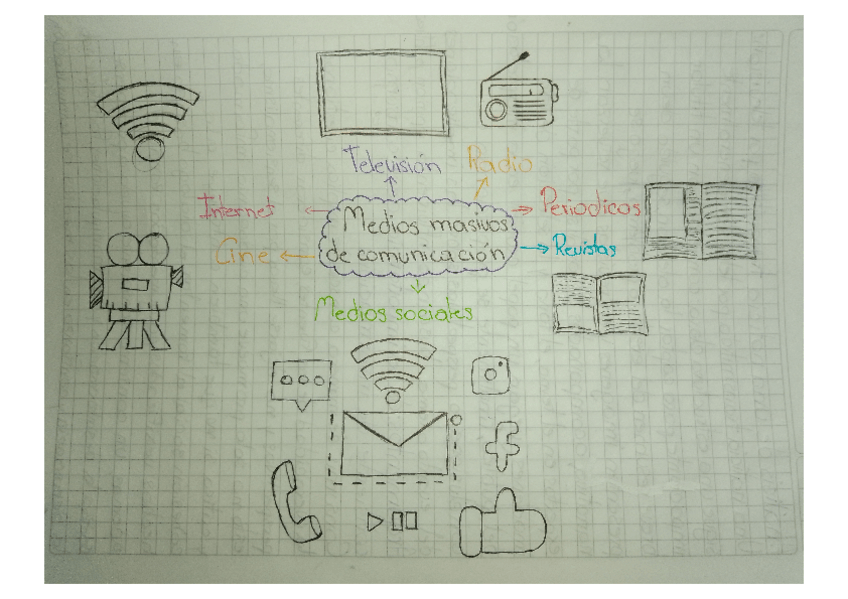 Televisión
Radio
Internet
Periodicos
Medios masivos
de comunicación
Cine
Revistas
Medios sociales